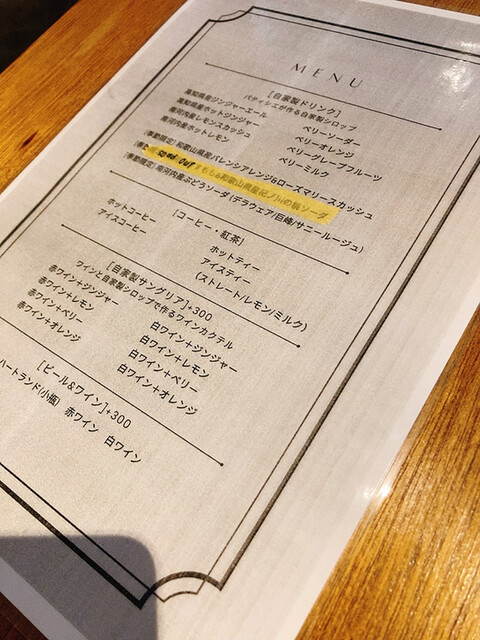 MENU
[自家製ドリンク]
パティシエが作る自家製シロップ
高知県産ジンジャーエール ベリーソーダー
高知県産ホットジンジャー ベリーオレンジ
南河内産レモンスカッシュ ベリーグレープフルーツ
南河内産ホットレモン ベリーミルク
(季節限定)和歌山県産バレンシアオレンジ&ローズマリースカッシュ
(季 Sold Out すもも&和歌山県産紀ノ川の桃ソーダ
(季節限定)南河内産ぶどうソーダ(デラウェア/巨峰/サニールージュ)
[コーヒー・紅茶]
ホットコーヒー ホットティー
アイスコーヒー アイスティー
(ストレート/レモン/ミルク)
[自家製サングリア]+300
ワインと自家製シロップで作るワインカクテル
赤ワイン+ジンジャー 白ワイン+ジンジャー
赤ワイン+レモン 白ワイン+レモン
赤ワイン+ベリー 白ワイン+ベリー
赤ワイン+オレンジ 白ワイン+オレンジ
[ビール&ワイン]+300
ハートランド(小瓶) 赤ワイン 白ワイン